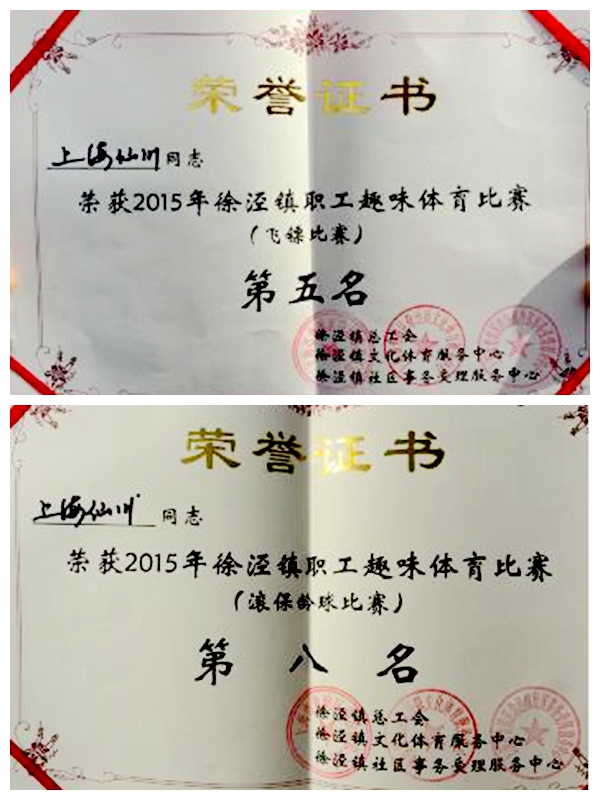 荣誉证书
上海仙川同志
荣获2015年徐泾镇职工趣味体育比赛
（飞镖比赛）
第五名
徐泾镇总工会
徐泾镇文化体育服务中心
徐泾镇社区事务受理服务中心
荣誉证书
上海仙川同志
荣获2015年徐泾镇职工趣味体育比赛
（滚保龄球比赛）
第八名
徐泾镇总工会
徐泾镇文化体育服务中心
徐泾镇社区事务受理服务中心